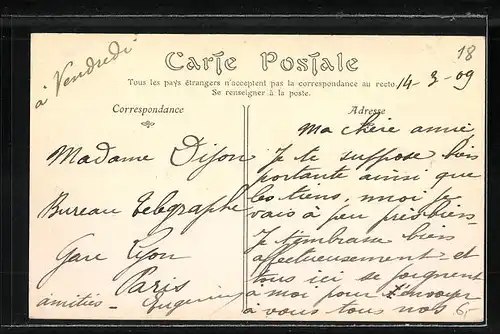 à Vendredi
18
Carte Postale
Tous les pays étrangers n'acceptent pas la correspondance au recto
Se renseigner à la poste.
14-3-09
Correspondance
Adresse
Madame Dijon
Bureau télégraphe
Gare Lyon
Paris
amitiés Eugénie
Ma chère amie
Je te suppose bien
portante ainsi que
les tiens, moi je
vais à peu près bien
Je t'embrasse bien
affectueusement et
tous ici se joignent
à moi pour t'envoyer
à vous tous nos
6,-